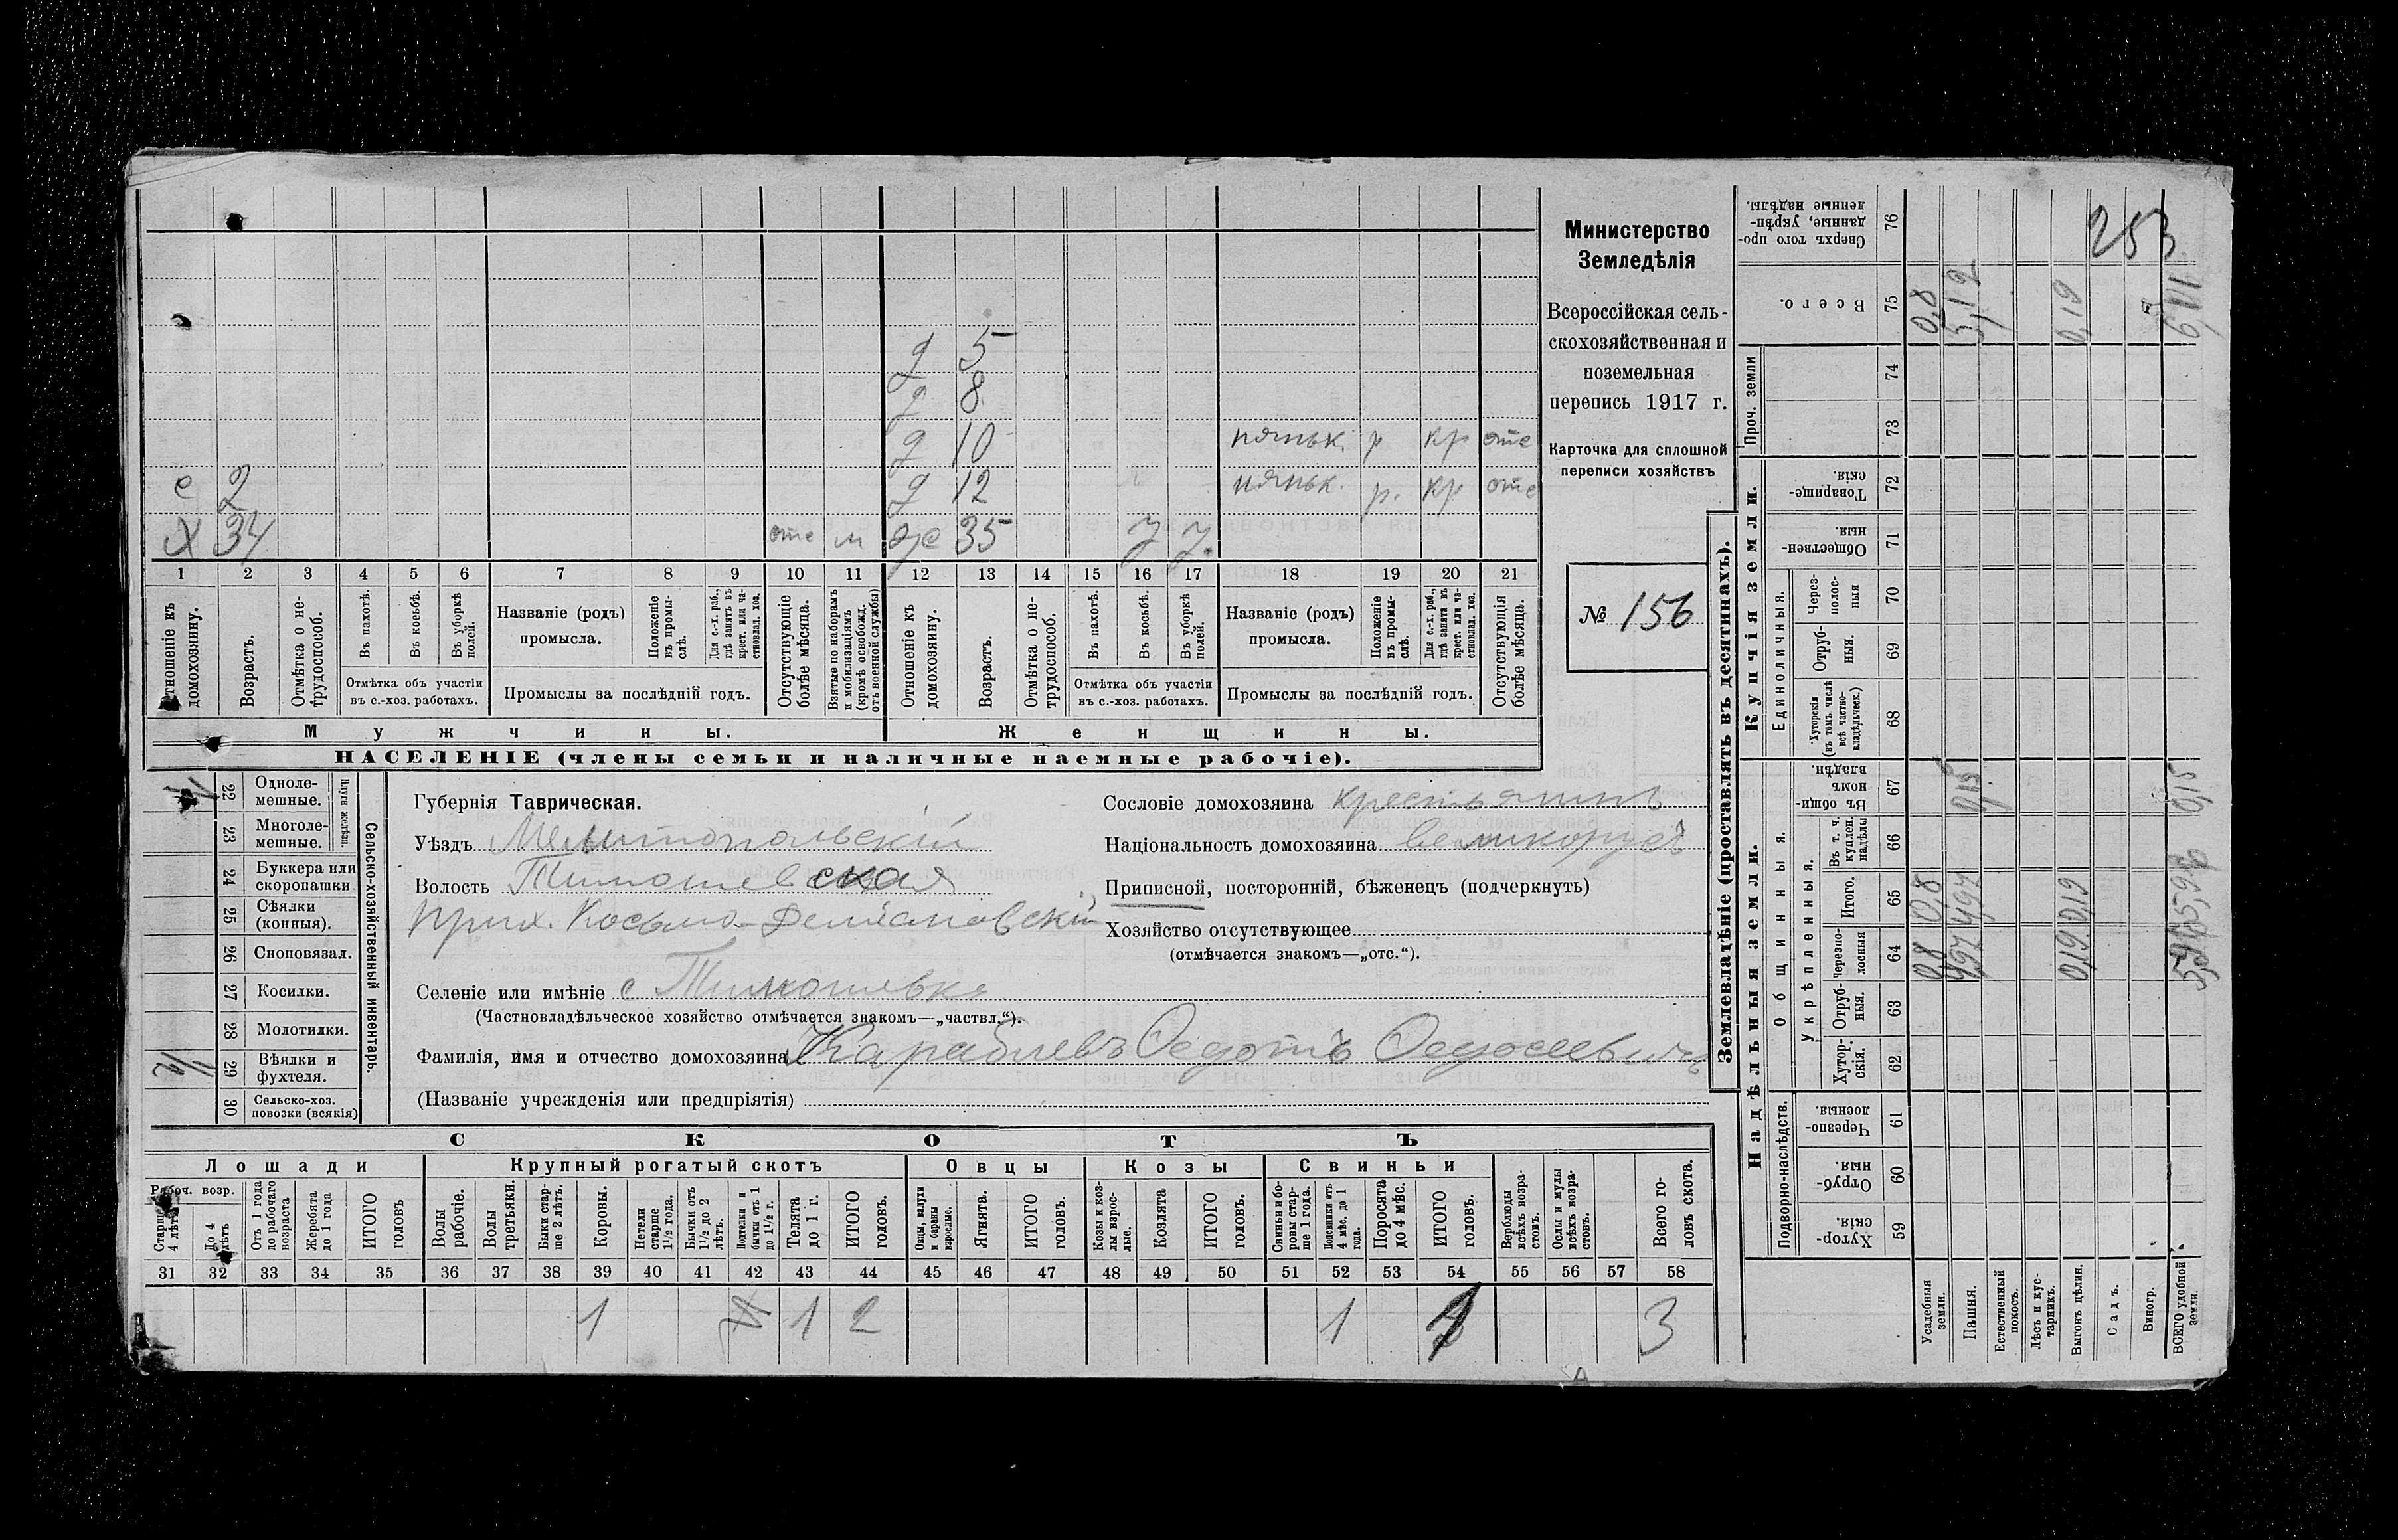 253
Министерство
Земледѣлія
Всероссійская сель-
скохозяйственная и
поземельная
перепись 1917 г.
Карточка для сплошной
переписи хозяйствъ
№ 156
д 5
д 8
д 10 няньк. р кр отс
е 2 д 12 няньк. р. кр отс
Х 34 отс м ж 35 у у.
1 2 3 4 5 6 7 8 9 10 11 12 13 14 15 16 17 18 19 20 21
Отношеніе къ домохозяину.
Возрастъ.
Отмѣтка о не-трудоспособ.
Въ пахотѣ.
Въ косьбѣ.
Въ уборкѣ полей.
Отмѣтка объ участіи
въ с.-хоз. работахъ.
Названіе (родъ)
промысла.
Положеніе въ промы-слѣ.
Для с.-х. раб., гдѣ занятъ въ крест. или ча-стновлад. хоз.
Промыслы за послѣдній годъ.
Отсутствующіе болѣе мѣсяца.
Взятые по наборамъ и мобилизаціямъ (кромѣ освобожд. отъ военной службы)
Отношеніе къ домохозяину.
Возрастъ.
Отмѣтка о не-трудоспособ.
Въ пахотѣ.
Въ косьбѣ.
Въ уборкѣ полей.
Отмѣтка объ участіи
въ с.-хоз. работахъ.
Названіе (родъ)
промысла.
Положеніе въ промы-слѣ.
Для с.-х. раб., гдѣ занята въ крест. или ча-стновлад. хоз.
Промыслы за послѣдній годъ.
Отсутствующія болѣе мѣсяца.
Мужчины.
Женщины.
НАСЕЛЕНІЕ (члены семьи и наличные наемные рабочіе).
Сельско-хозяйственный инвентарь.
Плуги желѣзн.
1 22 Одноле-мешные.
23 Многоле-мешные.
24 Буккера или скоропашки
25 Сѣялки (конныя).
26 Сноповязал.
27 Косилки.
28 Молотилки.
1/2 29 Вѣялки и фухтеля.
30 Сельско-хоз. повозки (всякія)
Губернія Таврическая.
Уѣздъ Мелитопольскій
Волость Тимошевская
Прих. Косьмо-Деміановскій
Селеніе или имѣніе с Тимошевка
(Частновладѣльческое хозяйство отмѣчается знакомъ—„частвл.“).
Фамилія, имя и отчество домохозяина Караблевъ Федотъ Федосеевичъ
(Названіе учрежденія или предпріятія)
Сословіе домохозяина крестьянинъ
Національность домохозяина великорусъ
Приписной, посторонній, бѣженецъ (подчеркнуть)
Хозяйство отсутствующее
(отмѣчается знакомъ—„отс.“).
СКОТЪ
Лошади
Крупный рогатый скотъ
Овцы
Козы
Свиньи
Рабоч. возр.
Старше 4 лѣтъ
До 4 лѣтъ
Отъ 1 года до рабочаго возраста
Жеребята до 1 года
ИТОГО головъ
Волы рабочіе.
Волы третьяки.
Быки стар-ше 2 лѣтъ.
Коровы.
Нетели старше 1½ года.
Бычки отъ 1½ до 2 лѣтъ.
Подтелки и бычки отъ 1 до 1½ г.
Телята до 1 г.
ИТОГО головъ.
Овцы, валухи и бараны взрослые.
Ягнята.
ИТОГО головъ.
Козы и коз-лы взрос-лые.
Козлята
ИТОГО головъ.
Свиньи и бо-ровы стар-ше 1 года.
Подсвинки отъ 4 мѣс. до 1 года.
Поросята до 4 мѣс.
ИТОГО головъ.
Верблюды всѣхъ возра-стовъ.
Ослы и мулы всѣхъ возра-стовъ.
Всего го-ловъ скота.
31 32 33 34 35 36 37 38 39 40 41 42 43 44 45 46 47 48 49 50 51 52 53 54 55 56 57 58
1 1 2 1 3
Землевладѣніе (проставлять въ десятинахъ).
Надѣльныя земли.
Купчія земли.
Проч. земли
Подворно-наслѣдств.
Общинныя.
Укрѣпленныя.
Единоличныя.
Хутор-скія. 59
Отруб-ныя. 60
Черезпо-лосныя 61
Хутор-скія. 62
Отруб-ныя. 63
Черезпо-лосныя 64
Итого. 65
Въ т. ч. куплен. надѣлы 66
Въ общин-номъ владѣн. 67
Хуторскія (въ томъ числѣ всѣ частно-владѣльческ.) 68
Отруб-ныя. 69
Через-полос-ныя 70
Обществен-ныя. 71
Товарище-скія. 72
73
74
Всего. 75
Сверхъ того про-данные, укрѣп-ленные надѣлы. 76
Усадебныя земли. 0,8 0,8 0,8
Пашня. 4,97 4,97 0,15 5,12
Естественный покосъ.
Лѣсъ и кус-тарникъ.
Выгонъ цѣлин. 0,19 0,19 0,19
Садъ.
Виногр.
ВСЕГО удобной земли. 5,96 5,96 0,15 6,11